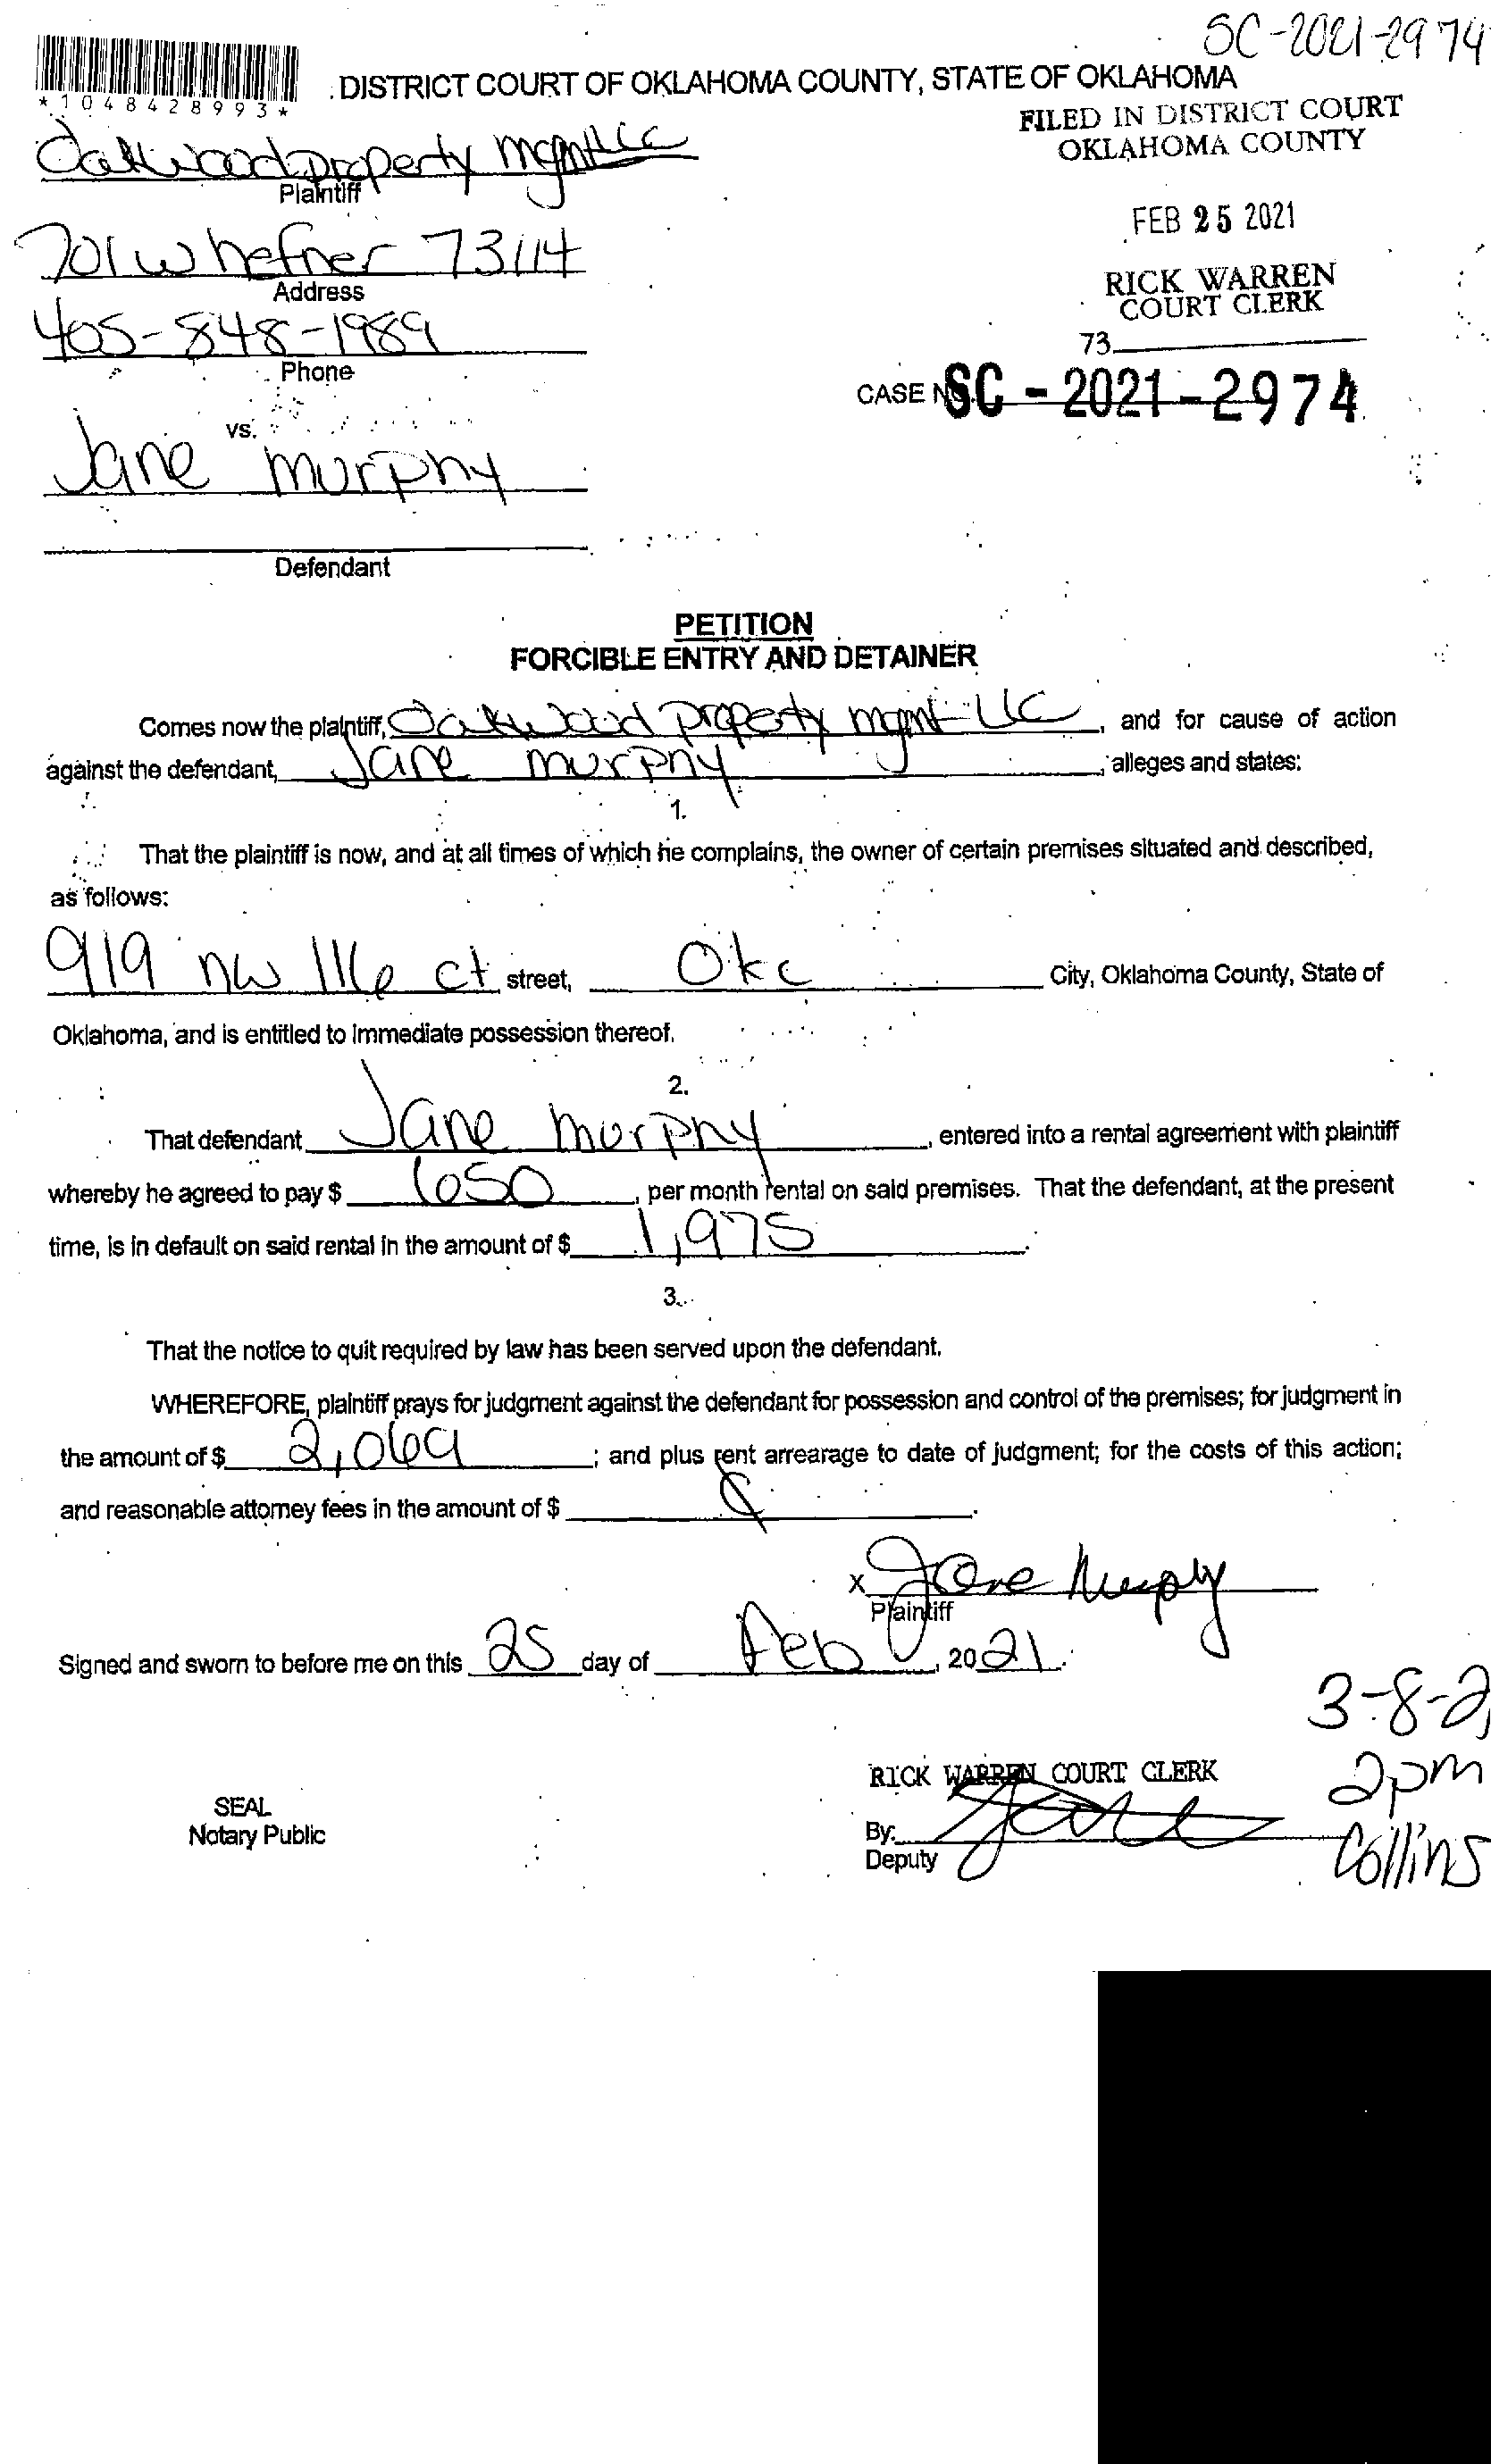 SC-2021-2974
*1048428993*
DISTRICT COURT OF OKLAHOMA COUNTY, STATE OF OKLAHOMA
FILED IN DISTRICT COURT
OKLAHOMA COUNTY
Oakwood property mgmt LLC
Plaintiff
FEB 25 2021
701 w hefner 73114
Address
RICK WARREN
COURT CLERK
405-848-1989
Phone
73
CASE NO. SC-2021-2974
vs.
Jane murphy
Defendant
PETITION
FORCIBLE ENTRY AND DETAINER
Comes now the plaintiff, Oakwood property mgmt LLC, and for cause of action
against the defendant, Jane murphy, alleges and states:
1.
That the plaintiff is now, and at all times of which he complains, the owner of certain premises situated and described,
as follows:
919 nw 116 ct street, Okc City, Oklahoma County, State of
Oklahoma, and is entitled to immediate possession thereof.
2.
That defendant Jane murphy, entered into a rental agreement with plaintiff
whereby he agreed to pay $ 650, per month rental on said premises. That the defendant, at the present
time, is in default on said rental in the amount of $ 1,975.
3.
That the notice to quit required by law has been served upon the defendant.
WHEREFORE, plaintiff prays for judgment against the defendant for possession and control of the premises; for judgment in
the amount of $ 2,069; and plus rent arrearage to date of judgment; for the costs of this action;
and reasonable attorney fees in the amount of $
x Jane Murphy
Plaintiff
Signed and sworn to before me on this 25 day of Feb, 2021.
3-8-2
RICK WARREN COURT CLERK
2pm
SEAL
Notary Public
By:
Deputy
Collins